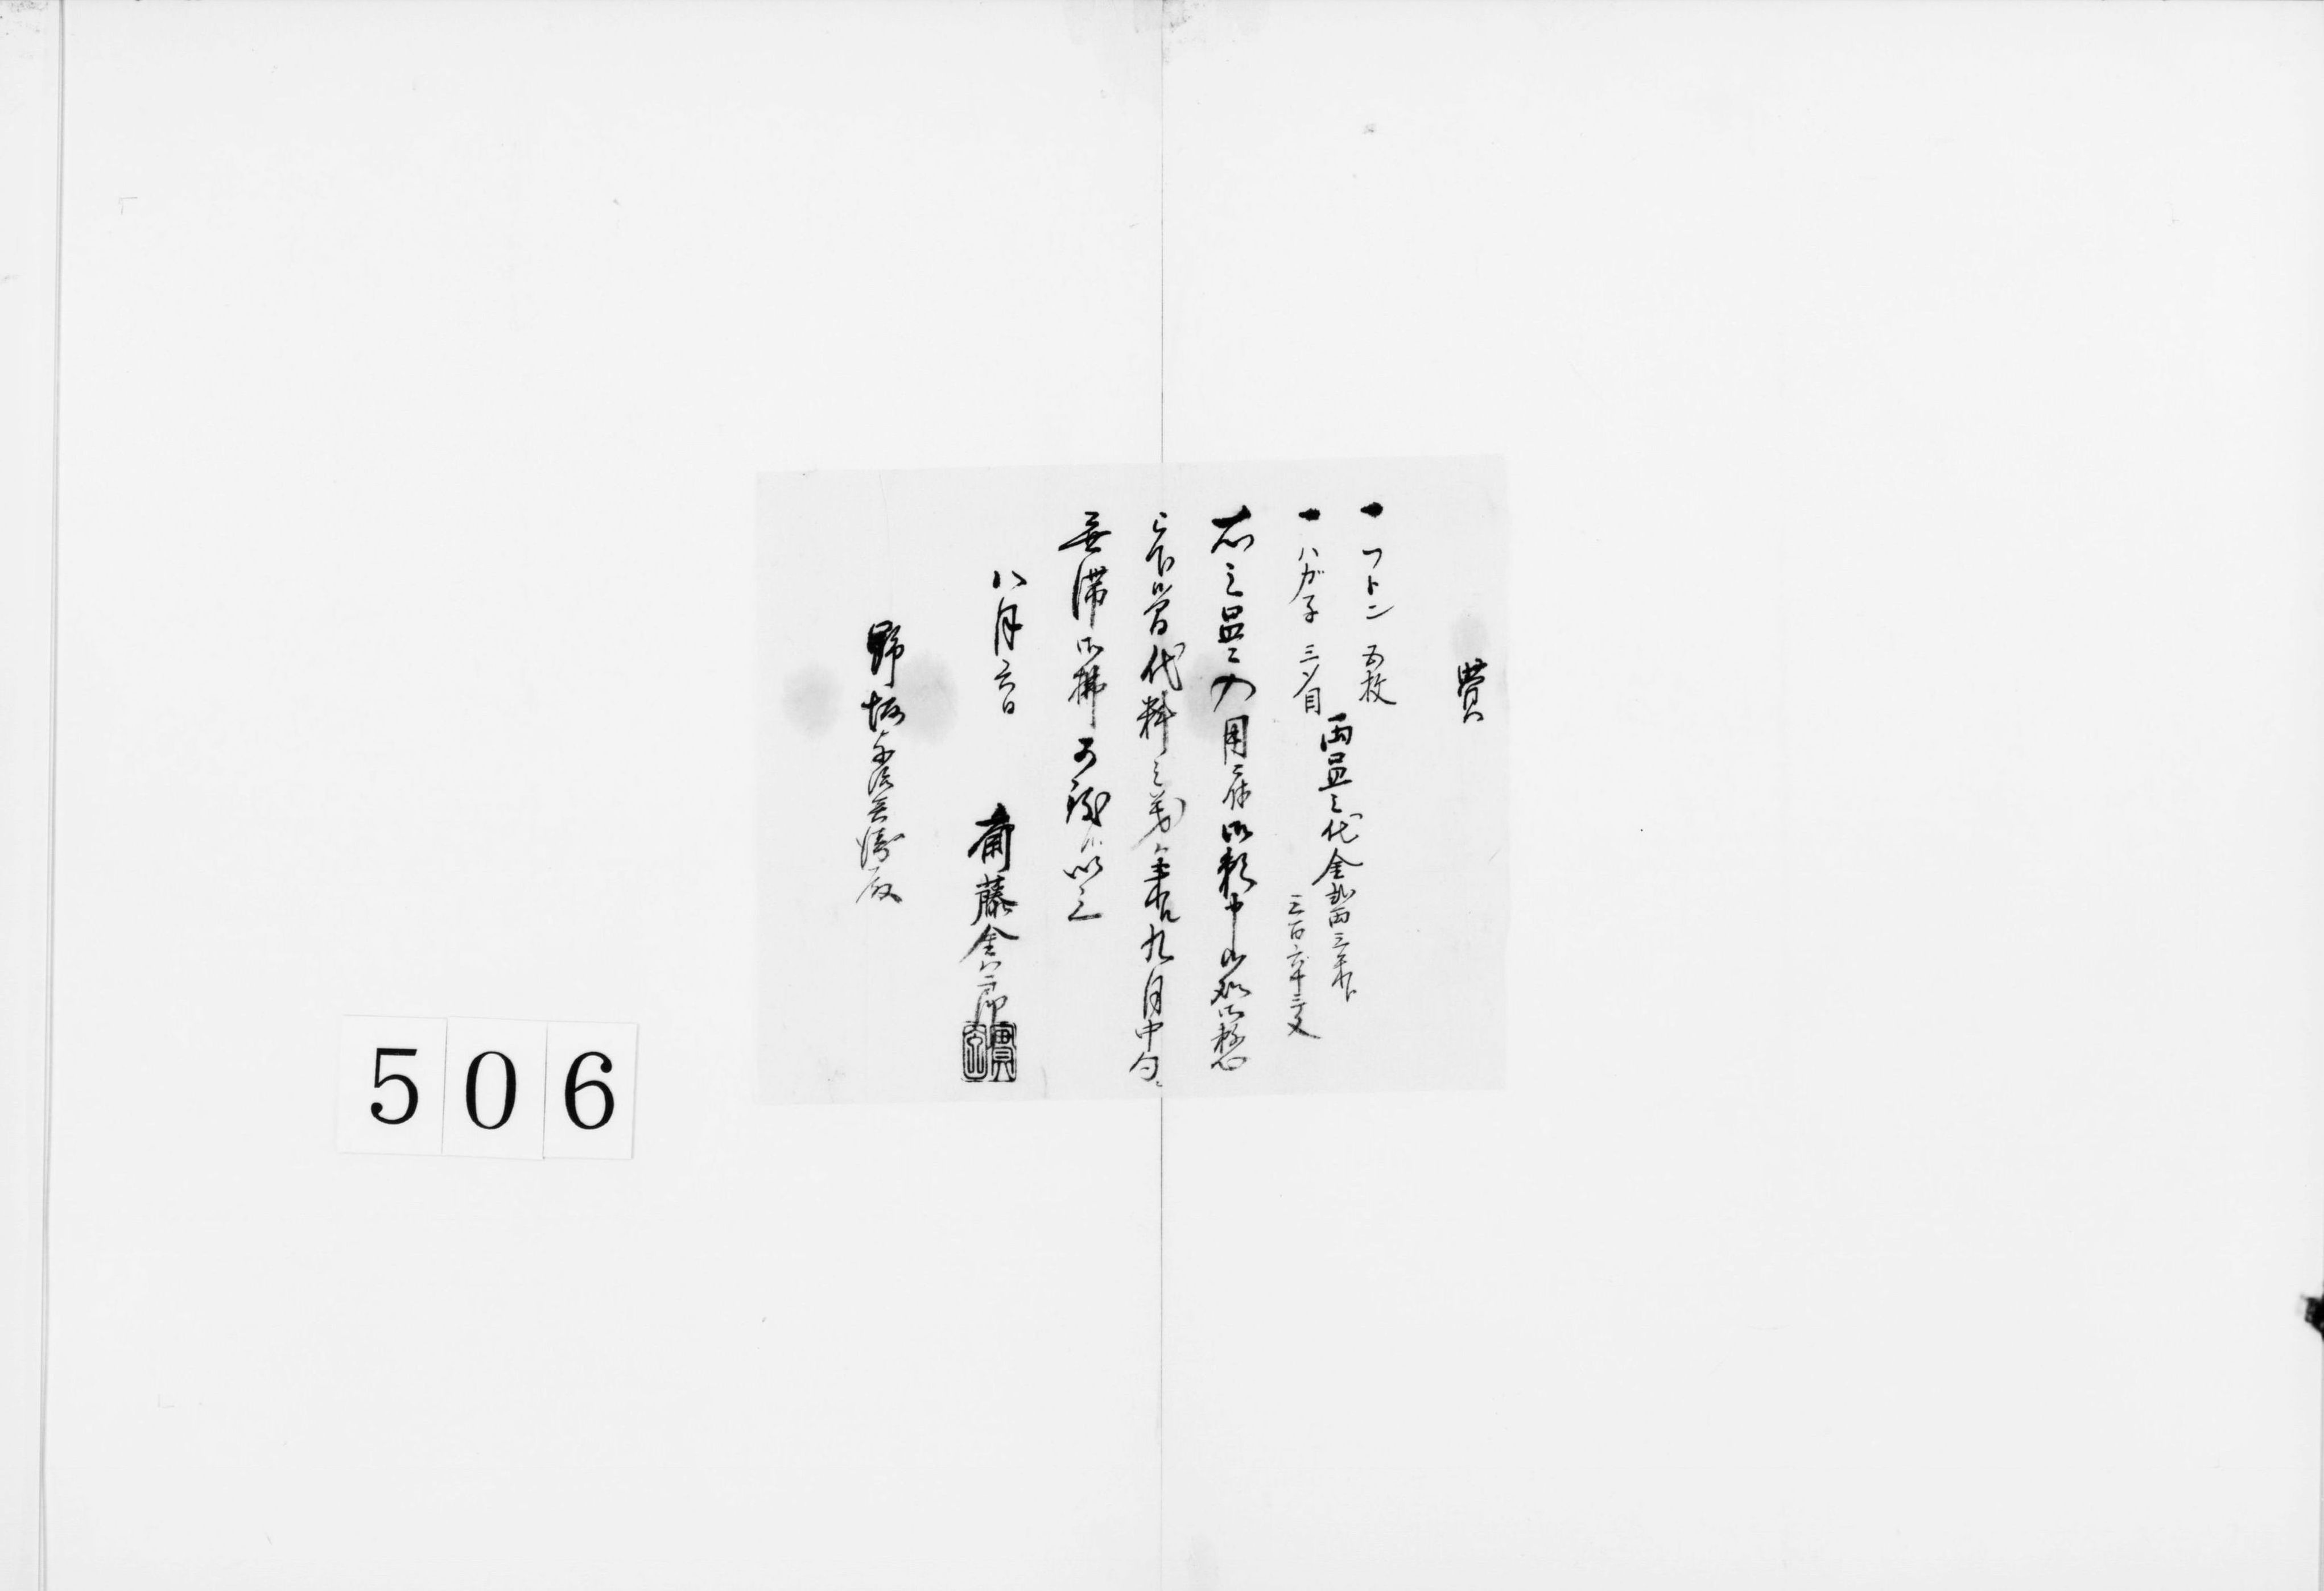 覚
一フトン 五枚
一ハガ子 三〆目
両品之代金 両三朱ト
三百六十三文
右之品々入用ニ付御頼申上候処御整
被下置代料之義ハ来九月中旬
無滞御払可致候以上
八月六日
斎藤金八郎
野坂 兵衛殿
506